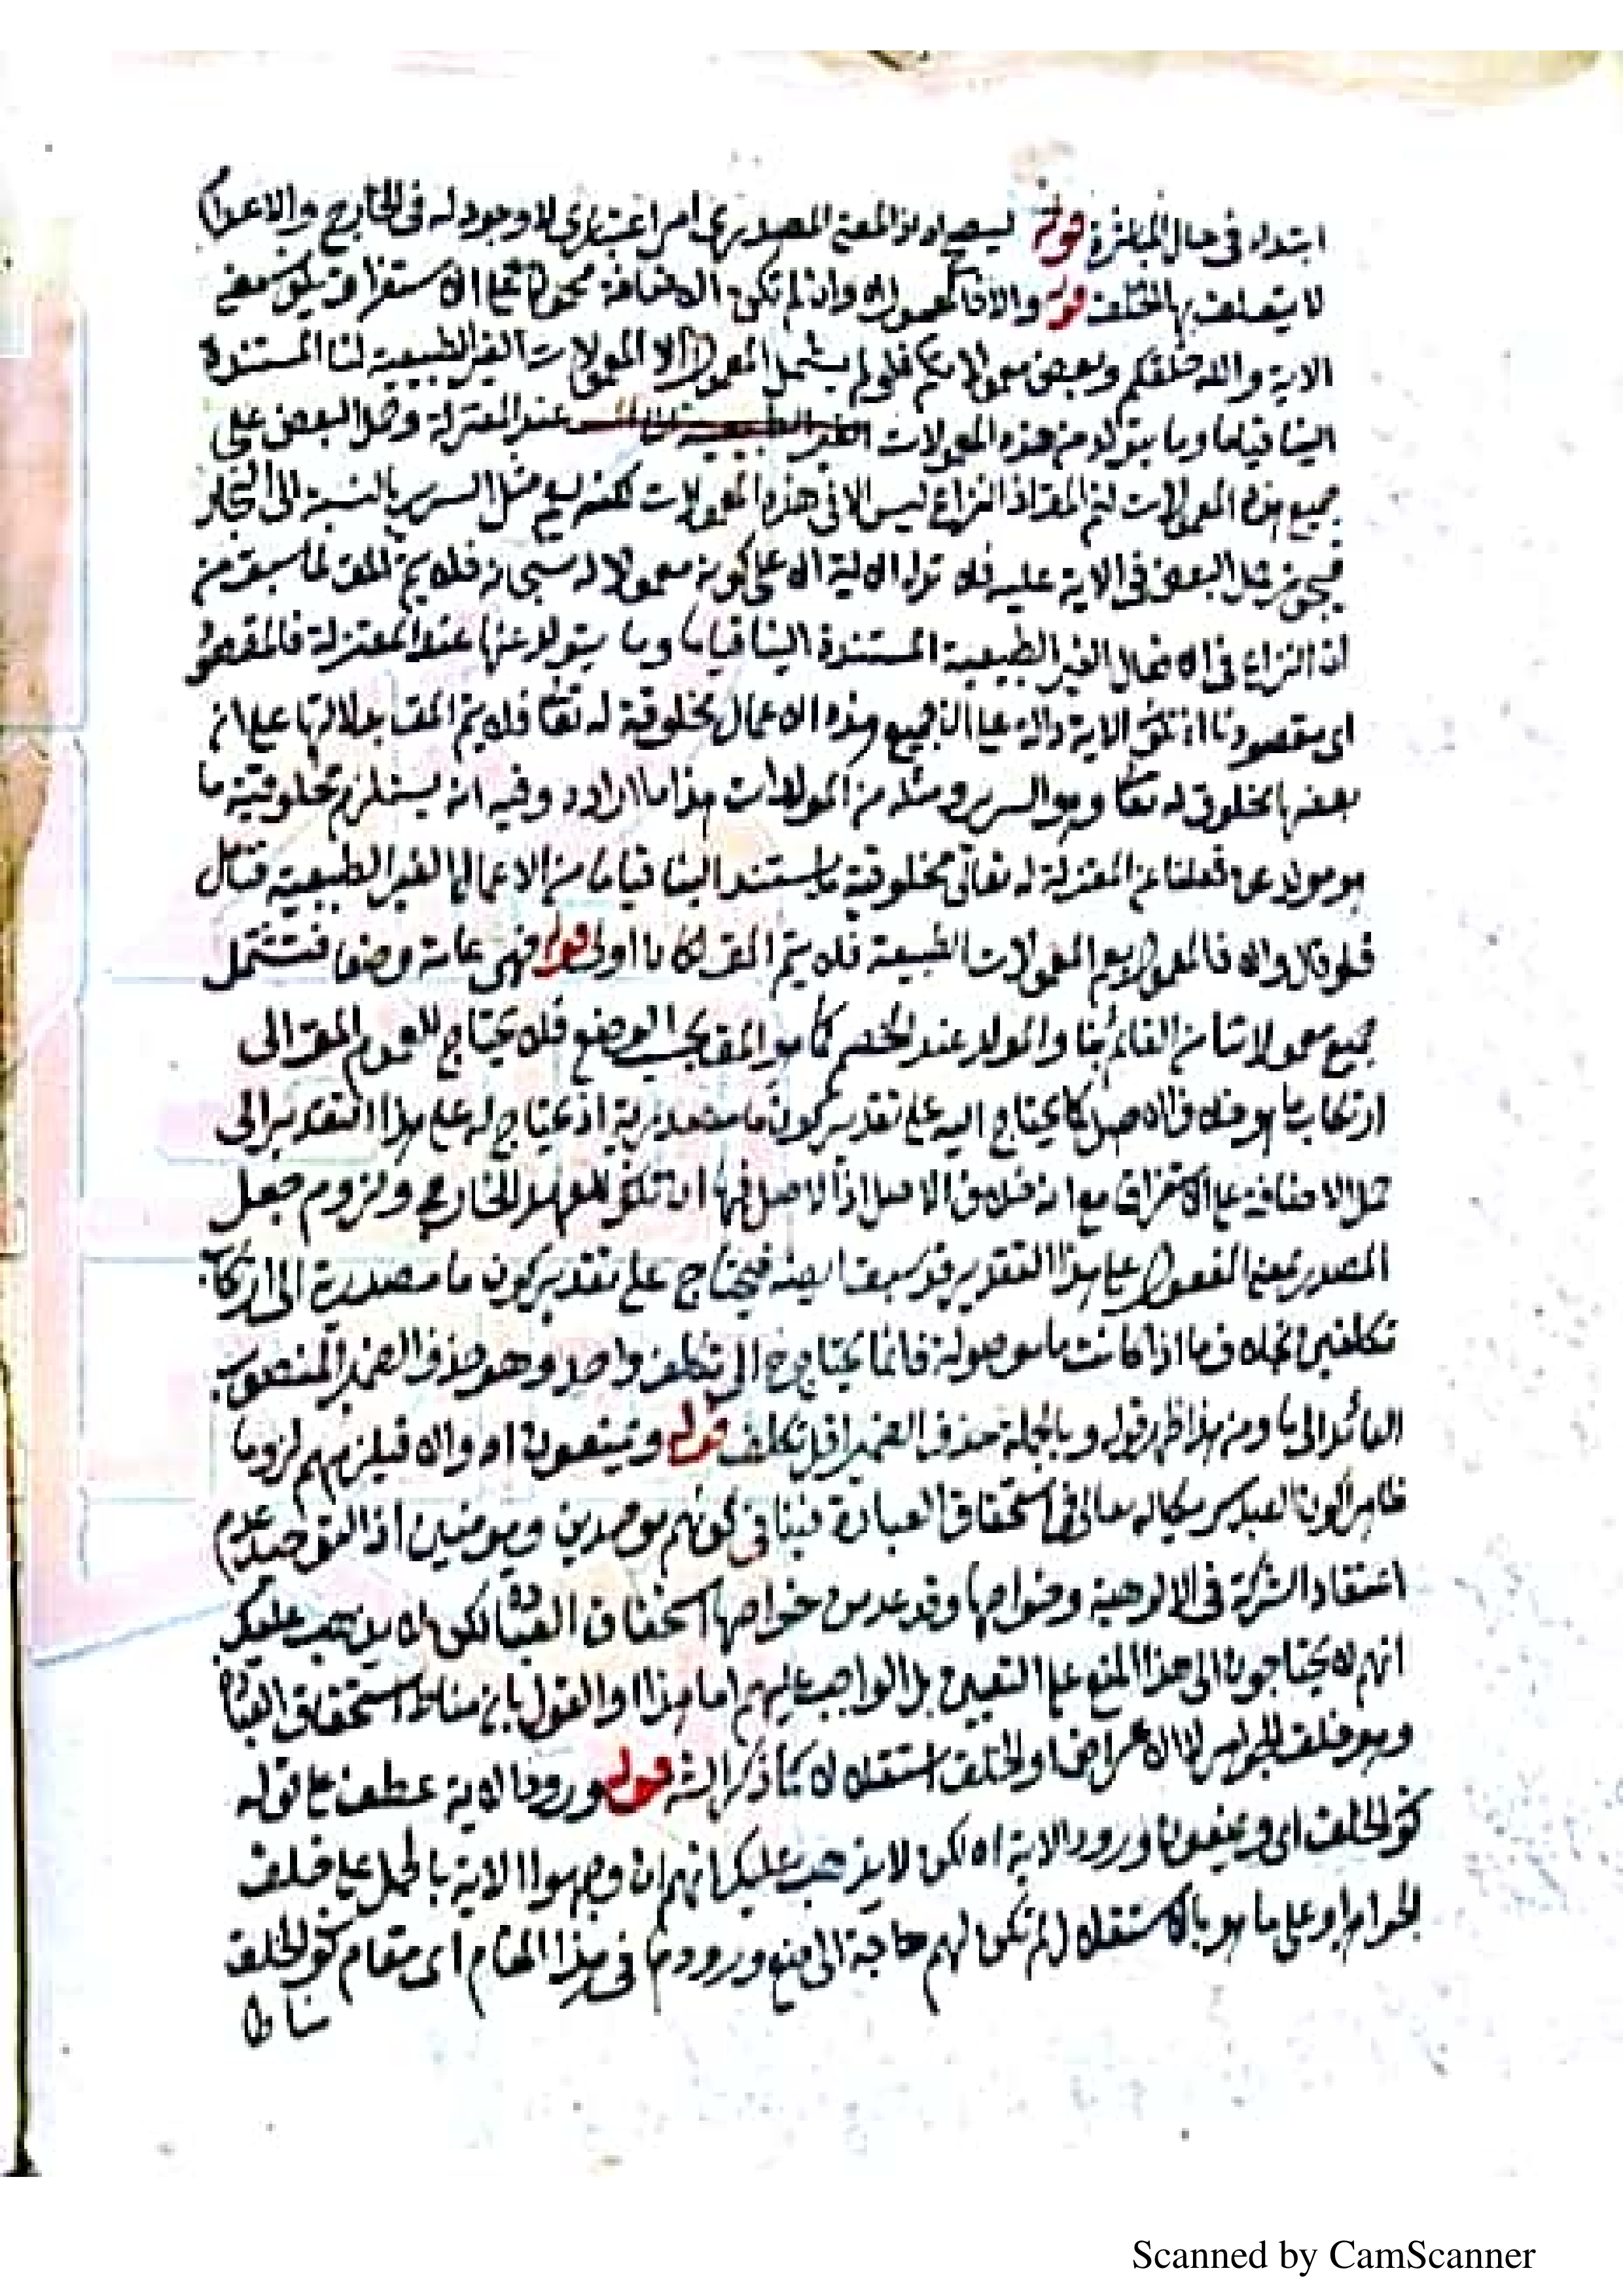 ابتداء في حال المباشرة قوله ليصح اه اذ المعنى المصدري امر اعتباري لا وجود له في الخارج والاعدا
لا يتعلق بها الخلق قوله والا فالمعمول اه وان لم تكن الاضافة محمولة على الاستغراق يكون معنى
الاية والله خلقكم وبعض معمولاتكم فلو لم يشتمل المعمول الا المعمولات الغير الطبيعية لنا المستندة
الينا قياما وما يتولد من هذه المعمولات عند المعتزلة وحمل البعض على
جميع هذه المعمولات لتم المقـ اذ النزاع ليس الا في هذه المعمولات لكنه يعم مثل السرير بالنسبة الى النجار
فيجوز حمل البعض في الاية عليه فلا تدل الاية الا على كونه معمولا له سبحانه فلا يتم المقـ لما سبق من
ان النزاع في الافعال الغير الطبيعية المستندة الينا قياما وما يتولد عنها عند المعتزلة فالمقصود
اى مقصودنا ان تكون الاية دالة على ان جميع هذه الاعمال مخلوقة له تعالى فلا يتم المقـ بدلالتها على ان
بعضها مخلوق له تعالى وهو السرير ومثله من المولدات هذا ما اراده وفيه انه يستلزم مخلوقية ما
هو مولد عن فعلنا عن المعتزلة له تعالى مخلوقية ما استند الينا قياما من الاعمال الغير الطبيعية فتأمل
فلو قال والا فالمعمول يعم المعمولات الطبيعة فلا يتم المقـ لكان اولى قوله فهى عامة وضعا فتشتمل
جميع معمولاتنا من القائم بنا والمولد عند الخصم كما هو المقـ بحسب الوضع فلا يحتاج للعموم المقـ الى
ارتكاب ما هو خلاف الاصل كما يحتاج اليه على تقدير كون ما مصدرية اذ يحتاج له على هذا التقدير الى
حمل الاضافة على الاستغراق مع انه خلاف الاصل اذ الاصل فيها ان تكون للعهد الخارجي ولزوم جعل
المصدر بمعنى المفعول على هذا التقدير قد سبق ايضه فيحتاج على تقدير كون ما مصدرية الى ارتكاب
تكلفين بخلاف ما اذا كانت ما موصولة فانما يحتاج ح الى تكلف واحد وهو حذف الضمير المنصوب
العائد الى ما ومن هذا ظهر قوله وبالجملة حذف الضمير اقل تكلف قوله ويمنعون اه والا فيلزمهم لزوما
ظاهرا كون العبد شريكا له تعالى في استحقاق العبادة فينافي كونهم موحدين ومومنين اذ التوحيد عدم
اعتقاد الشركة في الالوهية وخواصها وقد عد من خواصها استحقاق العبادة لكن لا يذهب عليك
انهم لا يحتاجون الى هذا المنع على التعيين بل الواجب عليهم اما هذا او القول بان مناط استحقاق العبادة
وهو خلق الجواهر لا الاعراض او الخلق استقلالا كما ذكر الشـ قوله ورود الاية عطف على قوله
كون الخلق اى ويمنعون ورود الاية اه لكن لا يذهب عليك انهم ان وجهوا الاية بالحمل على خلق
الجواهر او على ما هو بالاستقلال لم تكن لهم حاجة الى منع ورودها في هذا المقام اى مقام كون الخلق
مناطا
Scanned by CamScanner